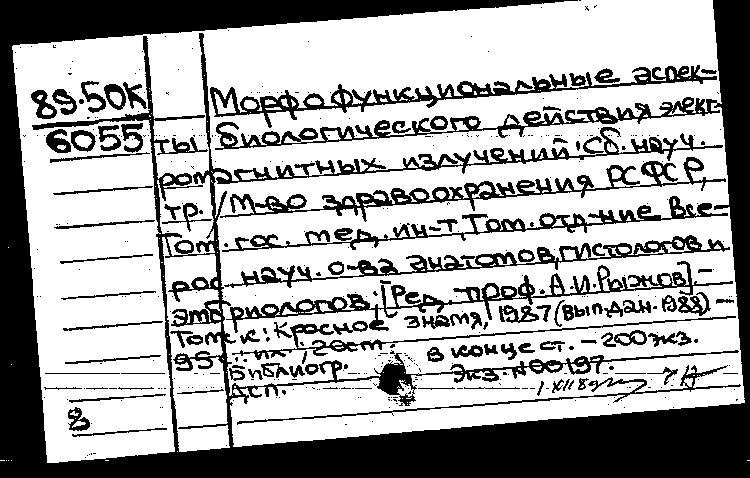 89.50К
6055
Морфофункциональные аспек-
ты биологического действия элект-
ромагнитных излучений: Сб. науч.
тр. / М-во здравоохранения РСФСР,
Том. гос. мед. ин-т, Том. отд-ние Все-
рос. науч. о-ва анатомов, гистологов и
эмбриологов; [Ред. проф. А.И. Рыжов]. -
Томск: Красное знамя, 1987 (вып. дан. 1988) -
95 с.: ил.; 20 см.
Библиогр. в конце ст. - 200 экз.
Экз. N 00197.
Дсп.